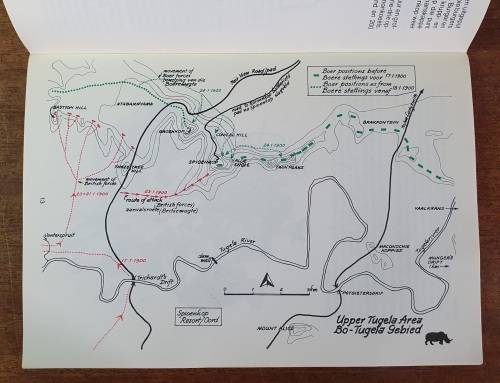 movement of
Boer forces
beweging van die
Boeremagte
24-1-1900
Boer positions before
Boere stellings voor 17·1·1900
Boer positions as from
Boere stellings vanaf 18·1·1900
BASTION HILL
GROENKOP
CONICAL HILL
24-1-1900
BRAKFONTEIN
SPIOENKOP
TWIN PEAKS
THREE TREE
HILL
movement of
British forces
20+21·1·1900
23·1·1900
route of attack
(British forces)
aanvalsroete (Britsemagte)
VAALKRANS
13
Venterspruit
17·1·1900
Tugela River
MACONOCHIE
KOPPIES
MUNGER'S
DRIFT
1 km
Trichardt's
Drift
POTGIETERSDRIF
Spioenkop
Resort/Oord
MOUNT ALICE
Upper Tugela Area
Bo-Tugela Gebied